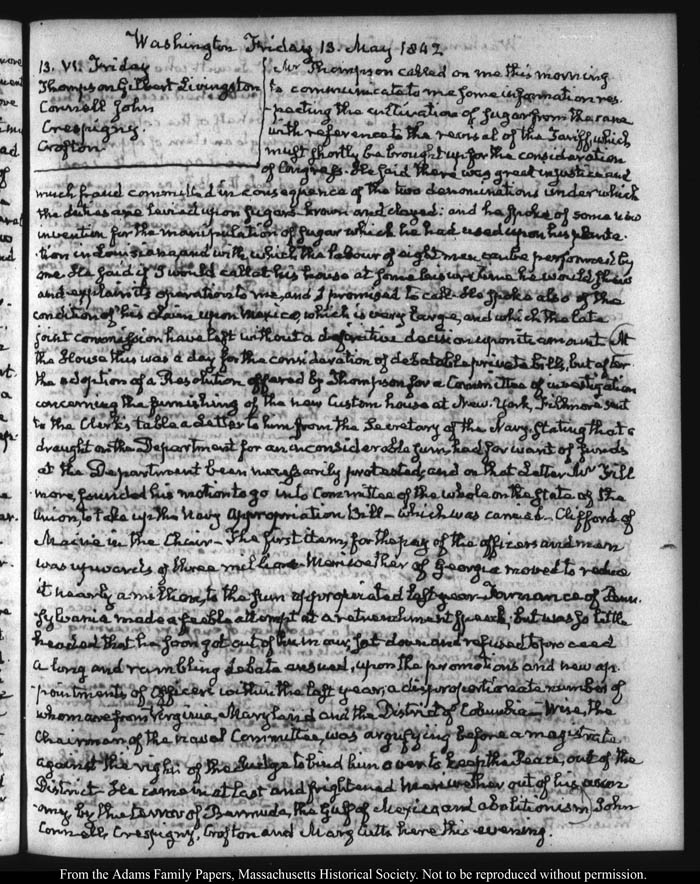 Washington Friday 13. May 1842
13. VI. Friday
Thompson Gilbert Livingston
Connell John
Crespigny.
Crofton
Mr Thompson called on me this morning
to communicate to me some information res-
pecting the cultivation of Sugar from the cane
with reference to the revisal of the Tariff which
must shortly be brought up for the consideration
of Congress. He said there was great injustice and
much fraud committed in consequence of the two denominations under which
the duties are levied upon sugars brown and clayed: and he spoke of some new
invention for the manipulation of sugar which he had used upon his planta-
tion in Louisiana, and with which the labour of eight men can be performed by
one. He said if I would call at his house at some leisure time he would shew
and explain its operation to me, and I promised to call. He spoke also of the
condition of his claim upon Mexico, which is very large, and which the late
joint commission have left without a definitive decision upon its amount. At
the House this was a day for the consideration of debatable private bills, but after
the adoption of a Resolution offered by Thompson for a Committee of investigation
concerning the furnishing of the new Custom house at New-York, Fillmore sent
to the Clerk's table a Letter to him from the Secretary of the Navy, stating that a
draught on the Department for an inconsiderable sum, had for want of funds
at the Department been necessarily protested; and on that Letter Mr Fill-
more, founded his motion to go into Committee of the whole on the State of the
Union, to take up the Navy Appropriation Bill - which was carried - Clifford of
Maine in the Chair - The first item, for the pay of the officers and men
was upwards of three millions - Meriwether of Georgia moved to reduce
it nearly a million, to the sum appropriated last year - Fornance of Penn-
sylvania made a feeble attempt at a retrenchment speech; but was so little
heeded that he soon got out of humour, sat down and refused to proceed
A long and rambling debate ensued, upon the promotions and new ap-
pointments of officers within the last year; a disproportionate number of
whom are from Virginia, Maryland and the District of Columbia - Wise, the
Chairman of the naval Committee, was argufying before a magistrate
against the right of the Judge to bind him over to keep the Peace, out of the
District - He came in at last and frightened Meriwether out of his econ-
omy by the terror of Bermuda, the Gulf of Mexico and abolitionism John
Connell, Crespigny, Crofton and Mary Cutts here this evening.
From the Adams Family Papers, Massachusetts Historical Society. Not to be reproduced without permission.